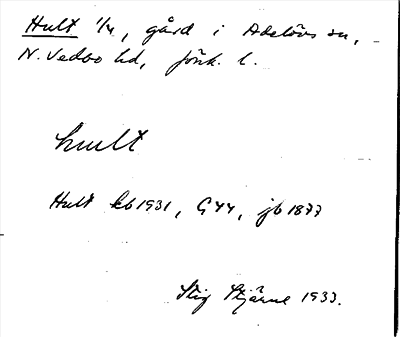 Hult 1/4, gård i Adelövs sn,
N. Vedbo hd, Jönk. l.
hult
Hult kb 1931, G 44, jb 1877
Stig Stjärne 1933.